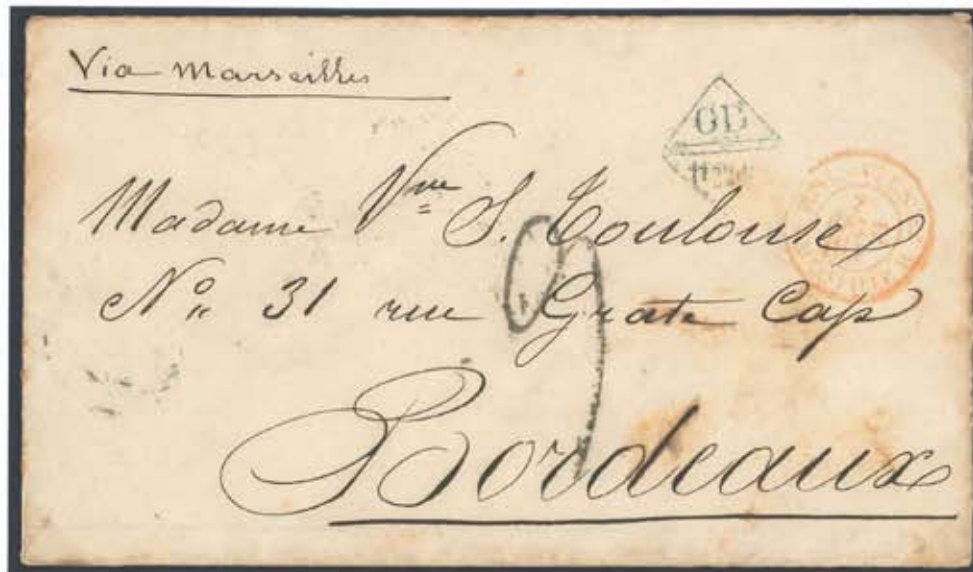 Via Marseilles
GB
Madame Vve S. Toulouse
No 31 rue Grate Cap
Bordeaux